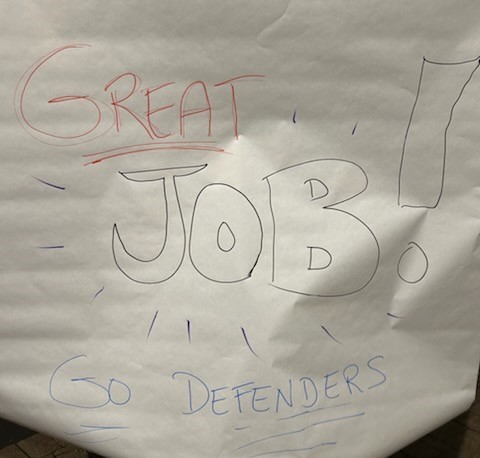 GREAT
JOB!
GO DEFENDERS